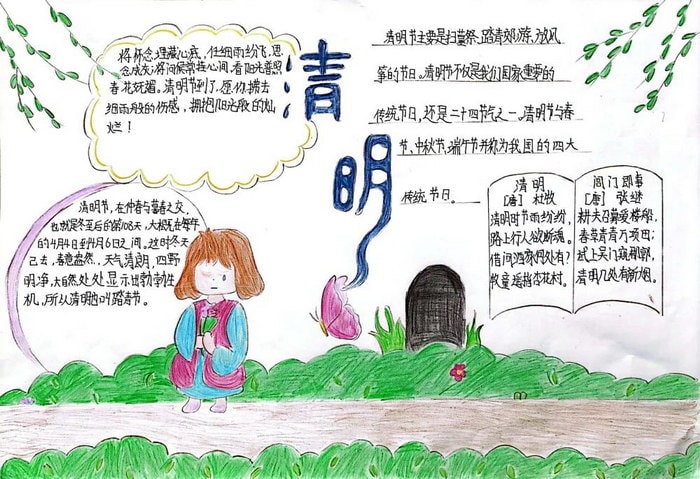 清明
将怀念埋藏心底，任细雨纷飞，思
念成灰；将问候常挂心间，看阳光普照
春花妩媚。清明节到了，愿你褪去
细雨般的伤感，拥抱阳光般的灿
烂！
清明节主要是扫墓祭、踏青郊游、放风
筝的节日。清明节不仅是我们国家重要的
传统节日，还是二十四节气之一。清明节与春
节、中秋节、端午节并称为我国的四大
传统节日。
清明节，在仲春与暮春之交，
也就是冬至后的第108天，大概在每年
的4月4日至4月6日之间，这时冬天
已去，春意盎然，天气清朗，四野
明净，大自然处处显示出勃勃生
机，所以清明也叫踏青节。
清明
[唐] 杜牧
清明时节雨纷纷，
路上行人欲断魂。
借问酒家何处有？
牧童遥指杏花村。
阊门即事
[唐] 张继
耕夫召募爱楼船，
春草青青万项田；
试上吴门窥郡郭，
清明几处有新烟。